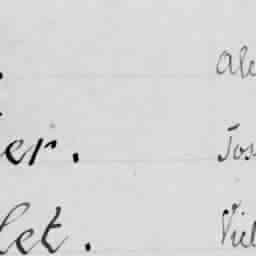 Ale
er. Jos
let. Vil